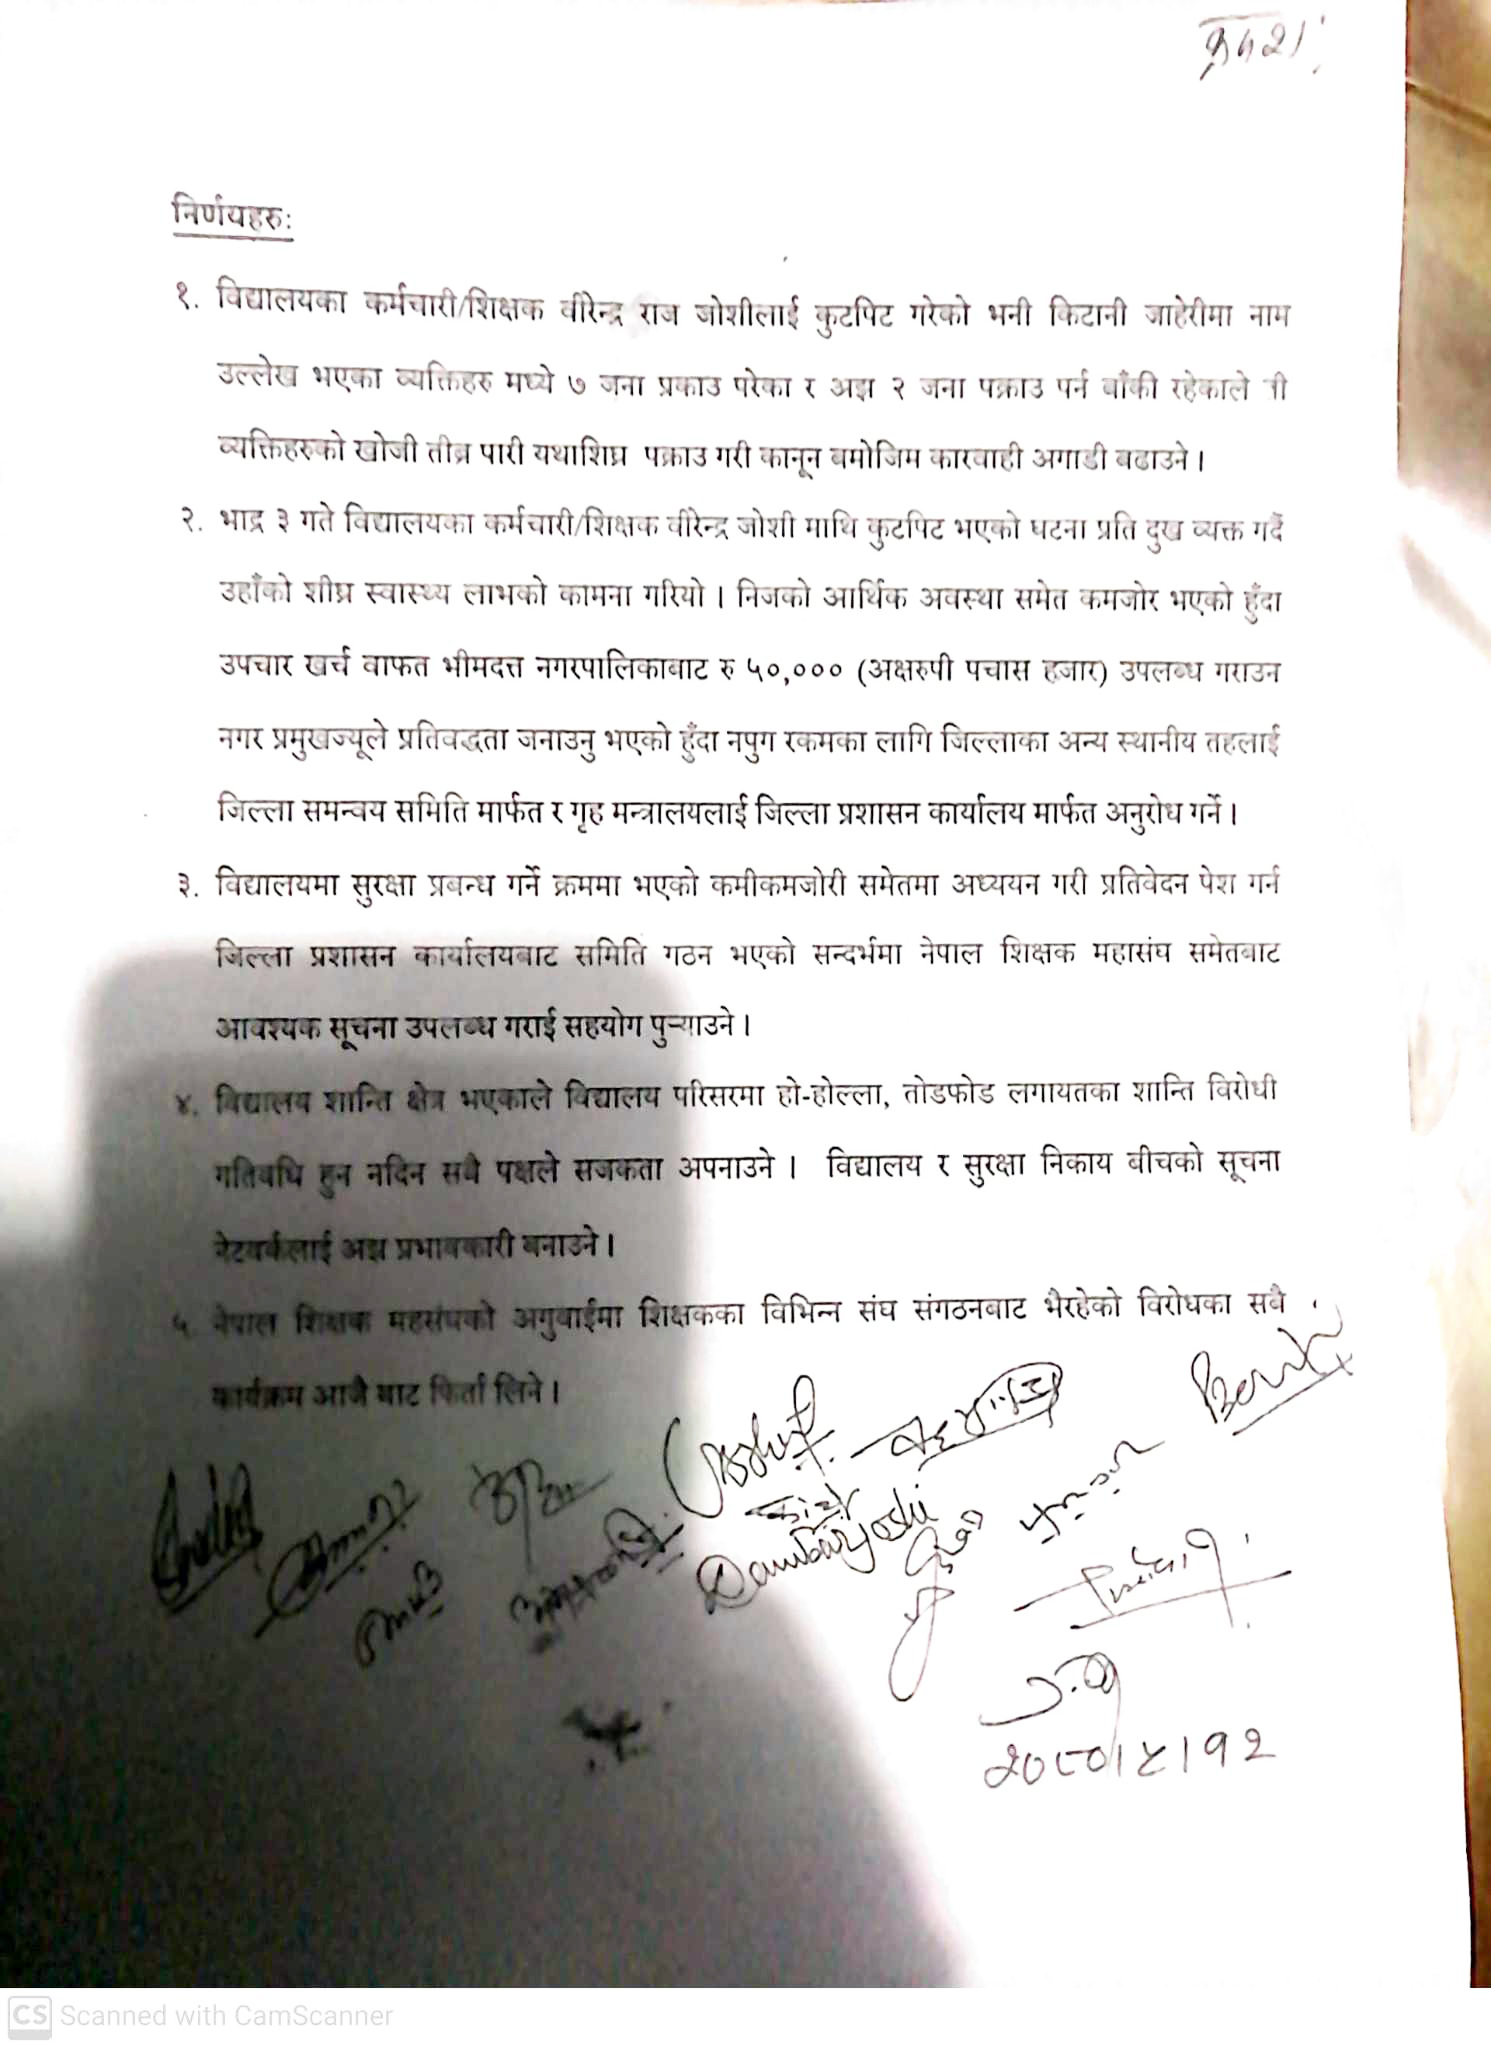 निर्णयहरुः
१. विद्यालयका कर्मचारी/शिक्षक वीरेन्द्र राज जोशीलाई कुटपिट गरेको भनी किटानी जाहेरीमा नाम
उल्लेख भएका व्यक्तिहरु मध्ये ७ जना प्रकाउ परेका र अझ २ जना पक्राउ पर्न बाँकी रहेकाले
व्यक्तिहरुको खोजी तीब्र पारी यथाशिघ्र पक्राउ गरी कानून बमोजिम कारवाही अगाडी बढाउने ।
२. भाद्र ३ गते विद्यालयका कर्मचारी/शिक्षक वीरेन्द्र जोशी माथि कुटपिट भएको घटना प्रति दुख व्यक्त गर्दै
उहाँको शीघ्र स्वास्थ्य लाभको कामना गरियो । निजको आर्थिक अवस्था समेत कमजोर भएको हुँदा
उपचार खर्च वाफत भीमदत्त नगरपालिकाबाट रु ५०,००० (अक्षरुपी पचास हजार) उपलब्ध गराउन
नगर प्रमुखज्यूले प्रतिवद्धता जनाउनु भएको हुँदा नपुग रकमका लागि जिल्लाका अन्य स्थानीय तहलाई
जिल्ला समन्वय समिति मार्फत र गृह मन्त्रालयलाई जिल्ला प्रशासन कार्यालय मार्फत अनुरोध गर्ने ।
३. विद्यालयमा सुरक्षा प्रबन्ध गर्ने क्रममा भएको कमीकमजोरी समेतमा अध्ययन गरी प्रतिवेदन पेश गर्न
जिल्ला प्रशासन कार्यालयबाट समिति गठन भएको सन्दर्भमा नेपाल शिक्षक महासंघ समेतबाट
आवश्यक सूचना उपलब्ध गराई सहयोग पुर्‍याउने ।
४. विद्यालय शान्ति क्षेत्र भएकाले विद्यालय परिसरमा हो-होल्ला, तोडफोड लगायतका शान्ति विरोधी
गतिबधि हुन नदिन सबै पक्षले सजकता अपनाउने । विद्यालय र सुरक्षा निकाय बीचको सूचना
नेटवर्कलाई अझ प्रभावकारी बनाउने ।
५ नेपाल शिक्षक महसंघको अगुवाईमा शिक्षकका विभिन्न संघ संगठनबाट भैरहेको विरोधका सबै
कार्यक्रम आजै बाट फिर्ता लिने ।
२०८०।५।१२
CS Scanned with CamScanner